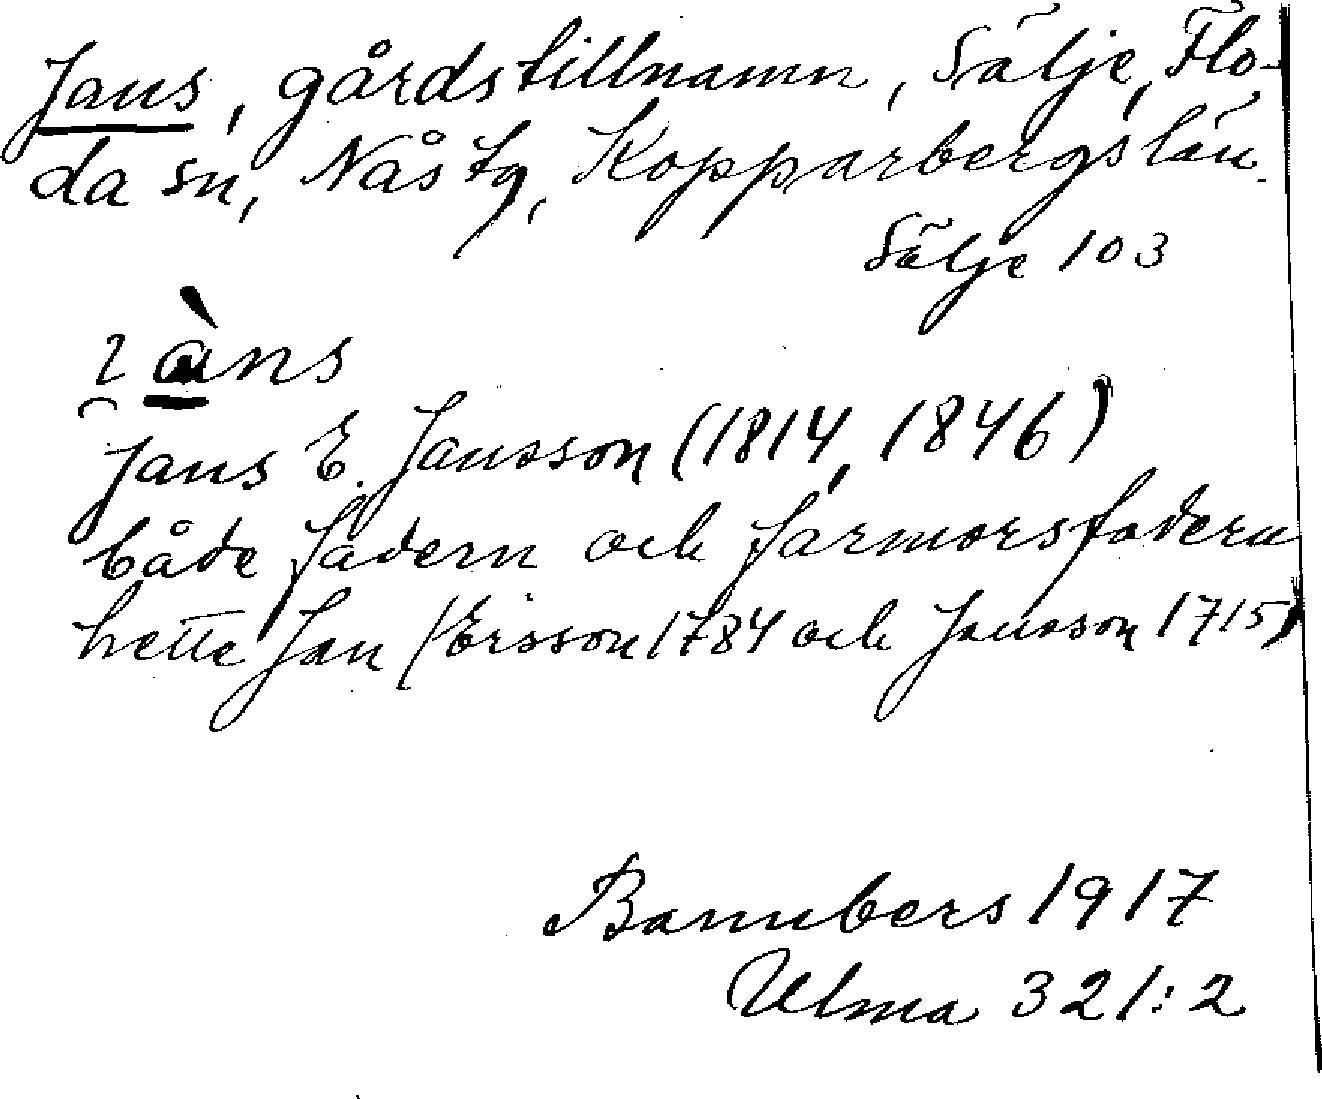 Jans, gårdstillnamn, Sälje, Flo-
da sn, Nås tg, Kopparbergs län.
Sälje 103
i̯àns
Jans E. Jansson (1814, 1846)
både fadern och farmorsfadern
hette Jan (Ersson 1784 och Jansson 1715)
Bannbers 1917
Ulma 321:2